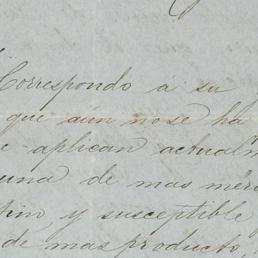 Correspondo á su
que aún no se ha
aplican actualm
una de mas méri
y susceptible
de mas producto,